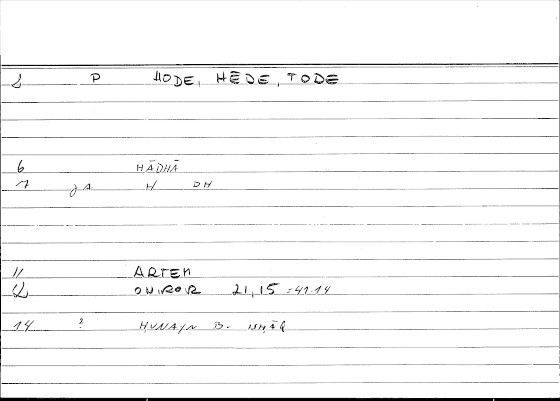 2 P HODE, HĒDE, TODE
6 HĀDHĀ
7 JA H DH
11 ARTEM
12 ONIROR 21,15 = 41.14
14 ? HUNAYN B. ISHĀQ